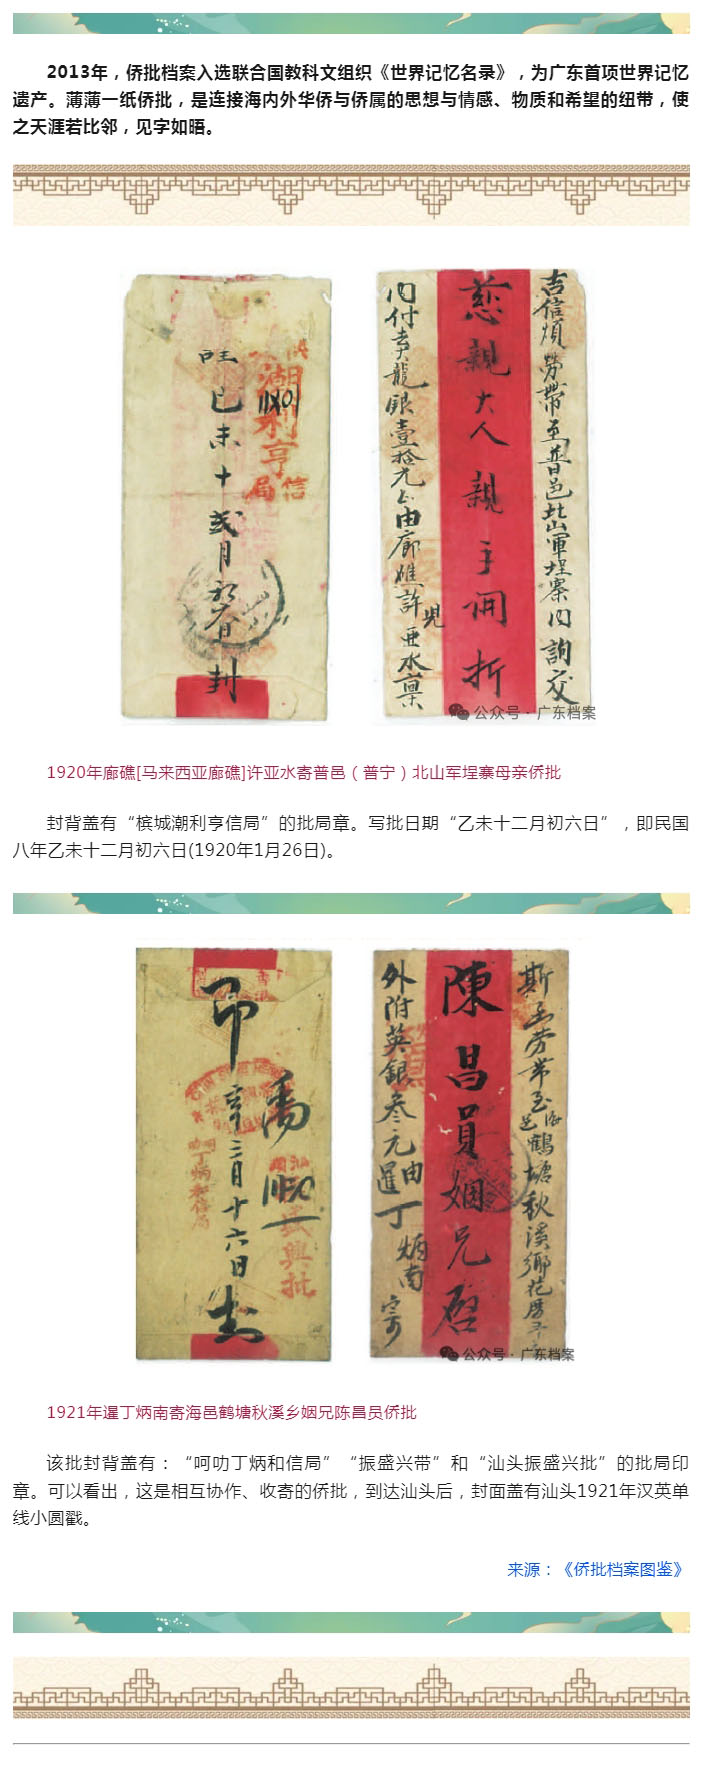 2013年，侨批档案入选联合国教科文组织《世界记忆名录》，为广东首项世界记忆
遗产。薄薄一纸侨批，是连接海内外华侨与侨属的思想与情感、物质和希望的纽带，使
之天涯若比邻，见字如晤。
吉信煩勞帶至普邑北山軍埕寨内詢交
慈親大人親手開折
内付英龍銀壹拾元
由廊樵許亚水稟
兒
旺
己未十弍月初六日封
潮利亨
信局
公众号·广东档案
1920年廊礁[马来西亚廊礁]许亚水寄普邑（普宁）北山军埕寨母亲侨批
封背盖有“槟城潮利亨信局”的批局章。写批日期“乙未十二月初六日”，即民国
八年乙未十二月初六日(1920年1月26日)。
勞帶至海邑鶴塘秋溪鄉
陳昌員姻兄啓
外附英銀叁元
由暹丁炳南寄
三月十六日封
丁炳和信局
興批
公众号·广东档案
1921年暹丁炳南寄海邑鹤塘秋溪乡姻兄陈昌员侨批
该批封背盖有：“呵叻丁炳和信局”“振盛兴带”和“汕头振盛兴批”的批局印
章。可以看出，这是相互协作、收寄的侨批，到达汕头后，封面盖有汕头1921年汉英单
线小圆戳。
来源：《侨批档案图鉴》